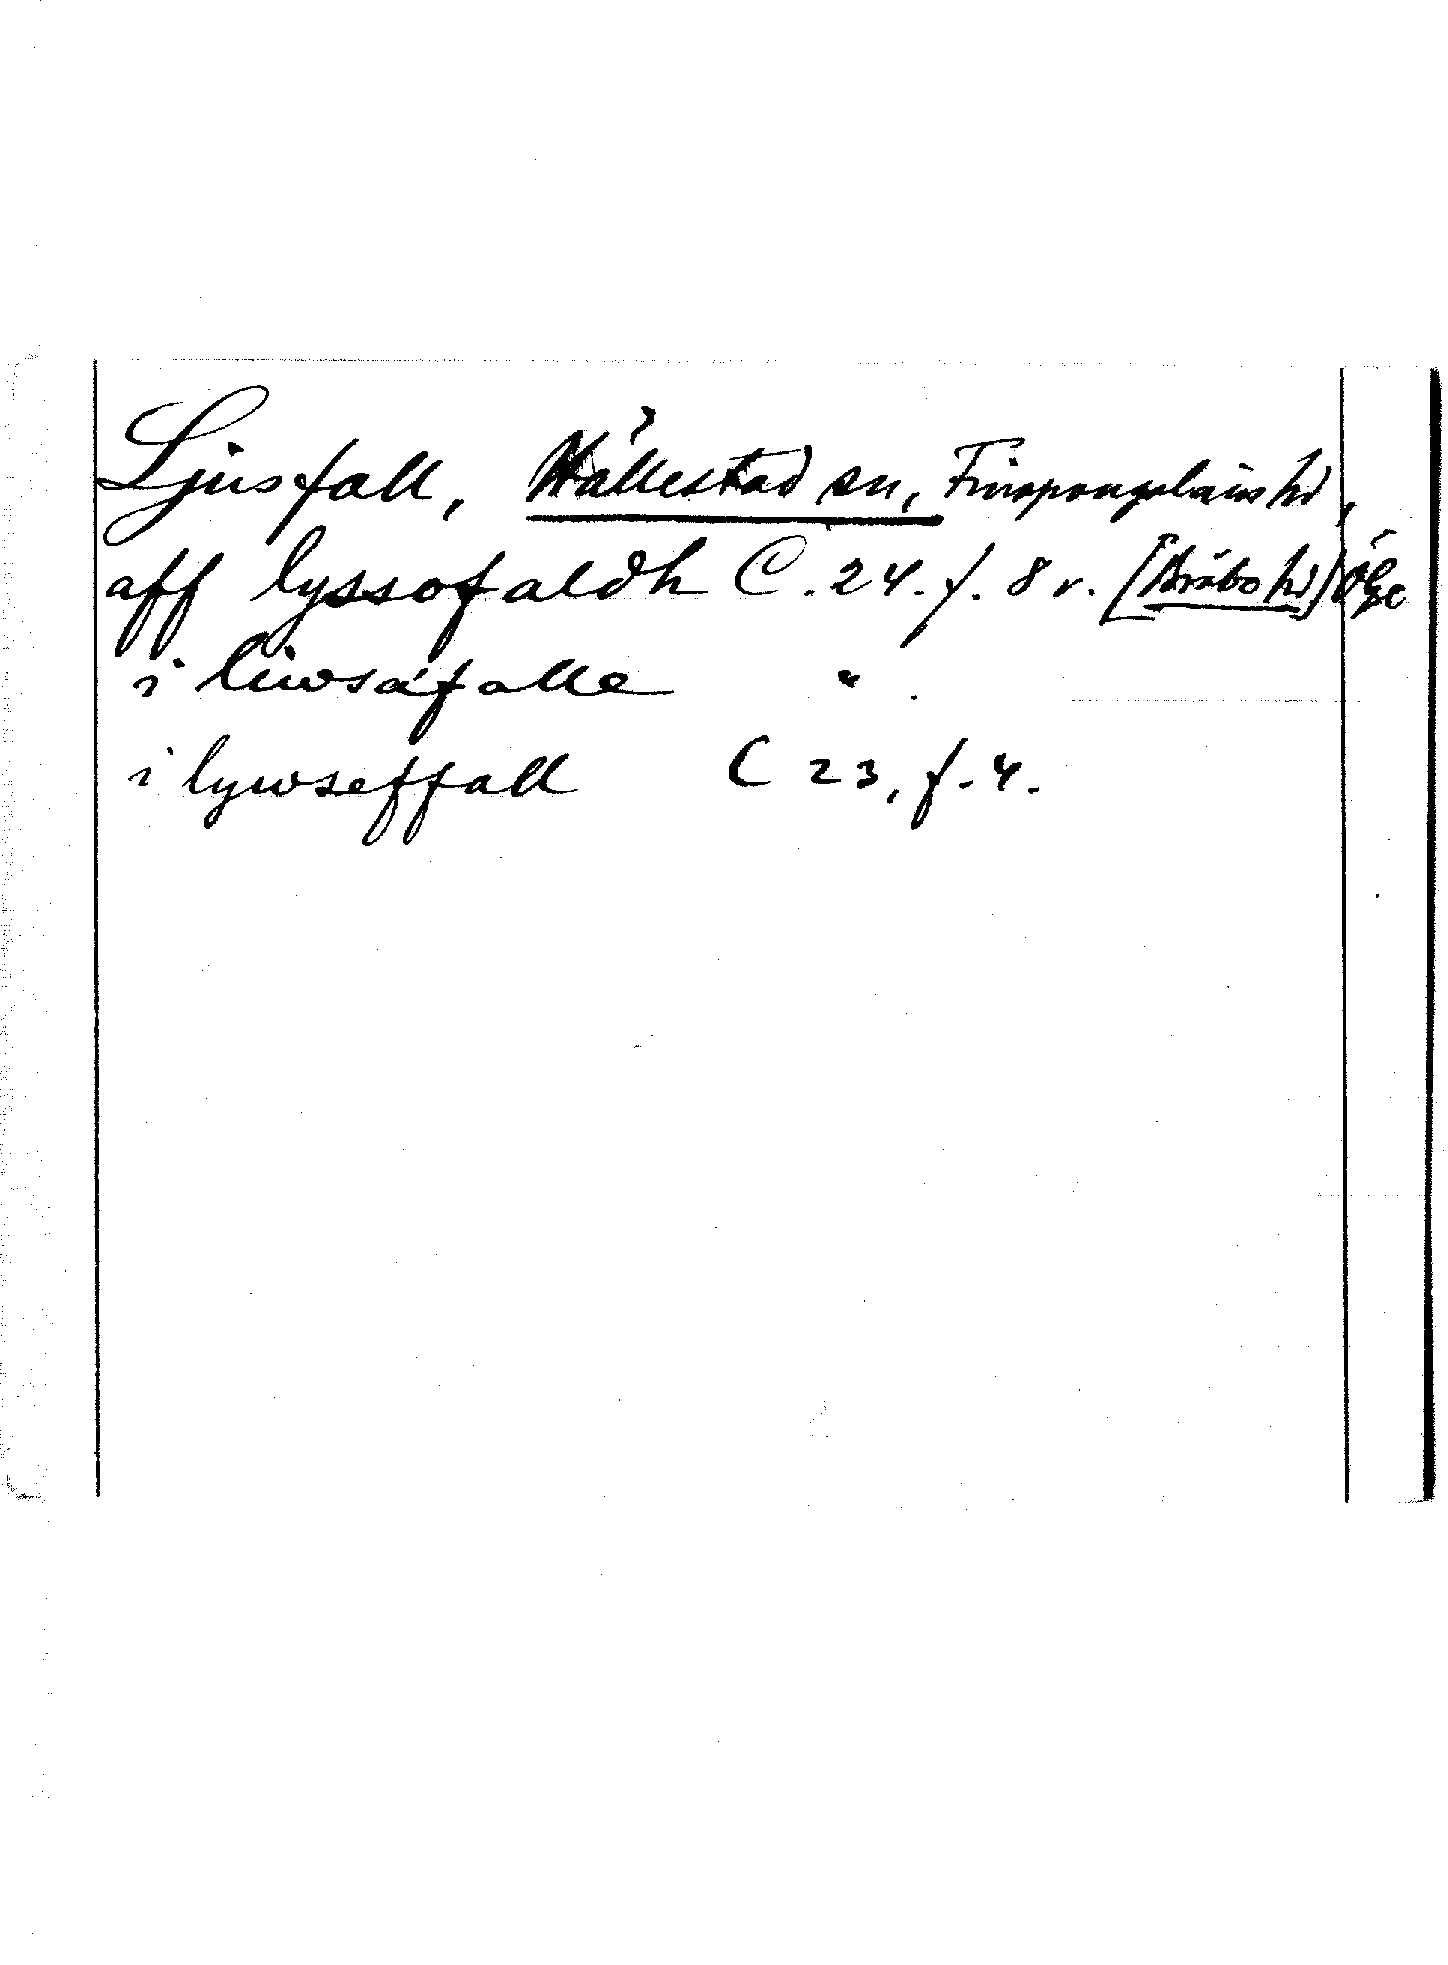 Ljusfall, Hällestad sn, Finspångaläns hd,
aff lyssofaldh C. 24. f. 8 v. [Bråbo hd] Ög
i liwsåfalle "
i lywseffall C 23, f. 4.